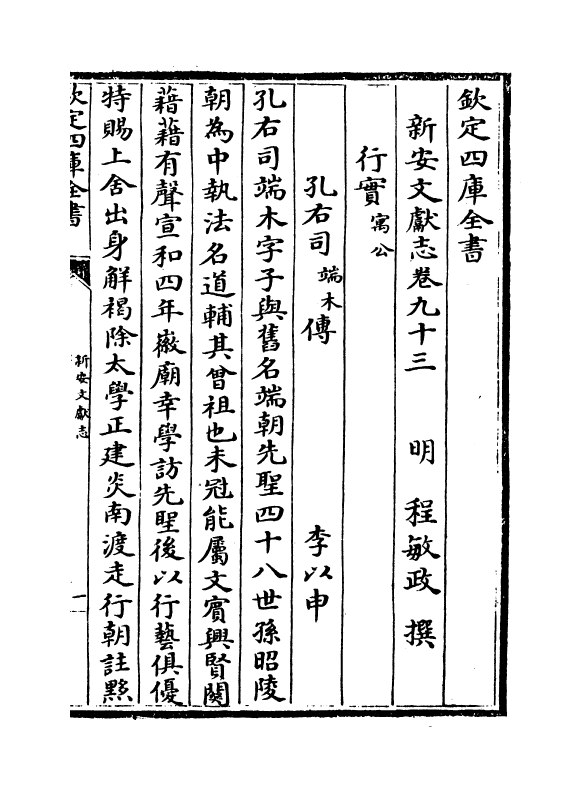 欽定四庫全書
新安文獻志卷九十三 明 程敏政 撰
行實寓公
孔右司端木傳 李以申
孔右司端木字子與舊名端朝先聖四十八世孫昭陵
朝為中執法名道輔其曾祖也未冠能屬文賓興賢闗
藉藉有聲宣和四年徽廟幸學訪先聖後以行藝俱優
特賜上舍出身解褐除太學正建炎南渡走行朝註黟
欽定四庫全書
新安文獻志
一